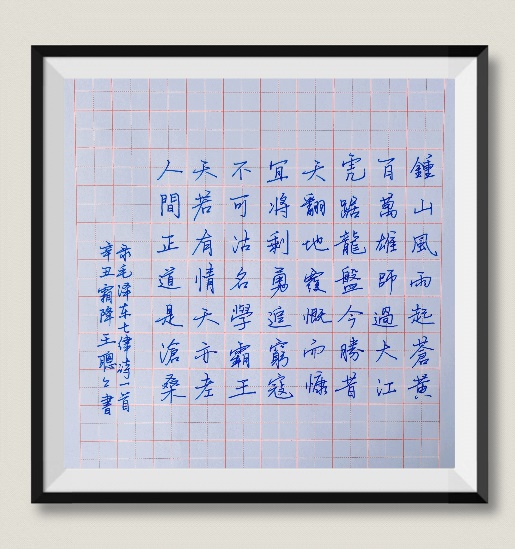 鍾山風雨起蒼黃
百萬雄師過大江
虎踞龍盤今勝昔
天翻地覆慨而慷
宜將剩勇追窮寇
不可沽名學霸王
天若有情天亦老
人間正道是滄桑
录毛泽东七律诗一首
辛丑霜降王聰々書